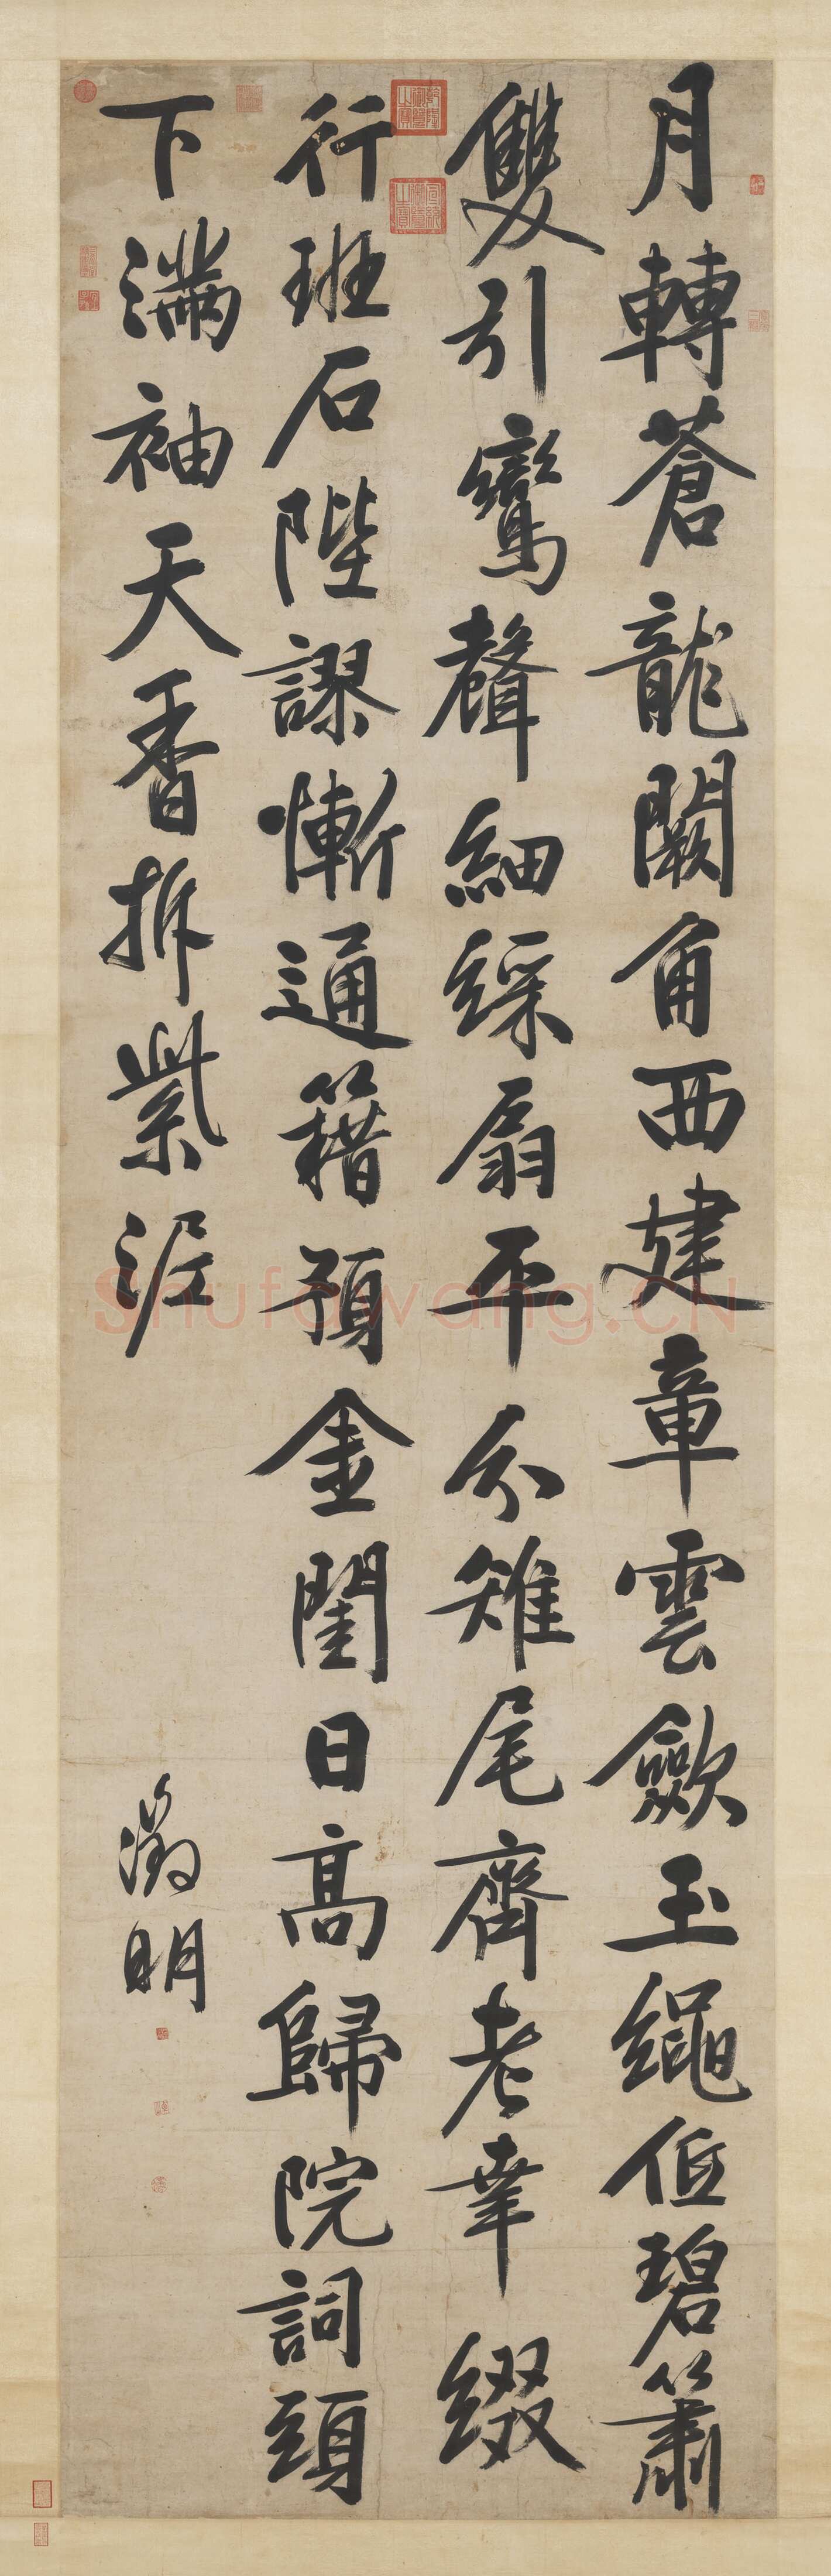 月轉蒼龍闕角西建章雲歛玉繩低碧簫
雙引鸞聲細綵扇平分雉尾齊老幸綴
行班石陛謬慚通籍預金閨日高歸院詞頭
下滿袖天香拆紫泥
徵明
Shufawang.CN